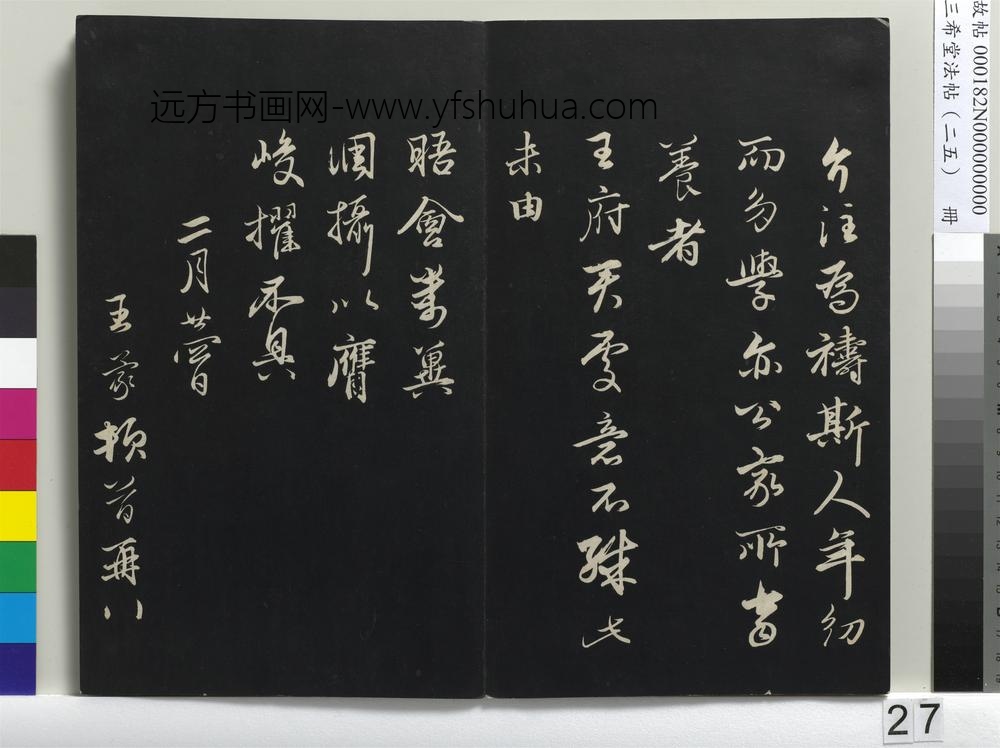 介注为禱斯人年幼
而多學亦公家所當
養者
王府天處意不殊此
未由
晤會萬冀
調攝以膺
峻擢不具
二月廿四日
王蒙頓首再
远方书画网-www.yfshuhua.com
故帖 000182N000000000
三希堂法帖(二五) 冊
27